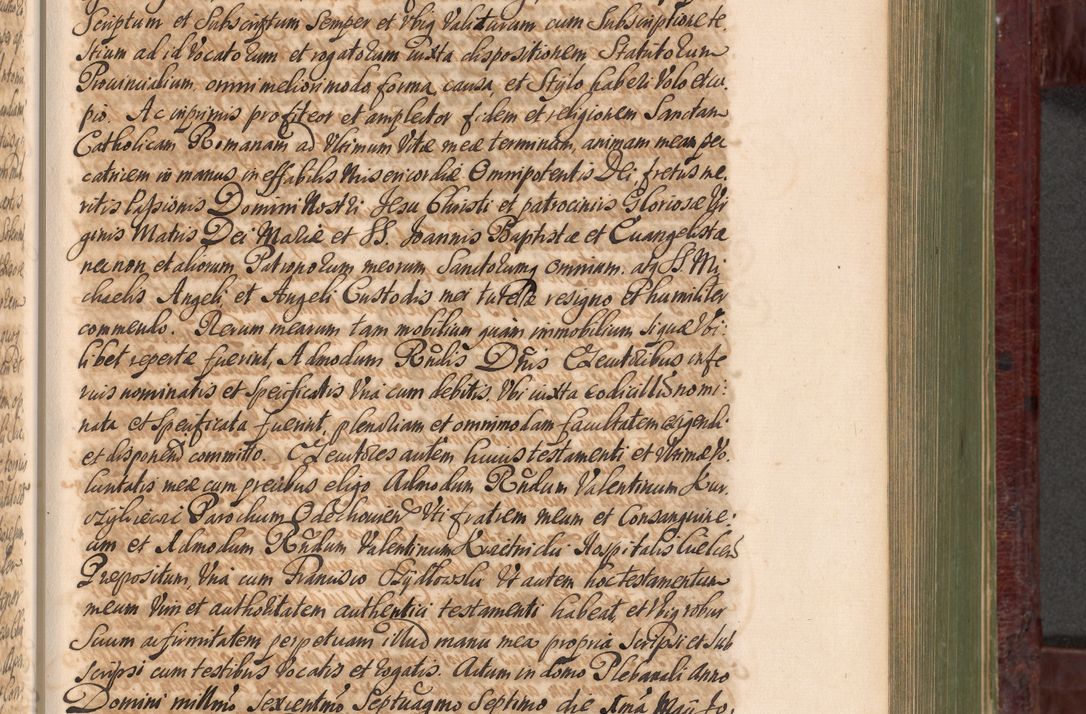 Scriptum et Subscriptum Semper et Ubiq Valiturum cum Subscriptione te
stium ad id Vocatorum et rogatorum iuxta dispositionem Statutorum
Provincialium, omni meliori modo, forma, causa, et Stylo haberi Volo et cu
pio. Ac inprimis profiteor et amplector fidem et religionem Sanctam
Catholicam Romanam ad Ultimum Vitæ meæ terminum, animam meam pec
catricem in manus ineffabilis Misericordiæ Omnipotentis Dei fretus me
ritis Passionis Domini Nostri Jesu Christi et patrociniis Gloriosæ Vir
ginis Matris Dei Mariæ et SS. Joannis Baptistæ et Euangelistæ
nec non et aliorum Patronorum meorum Sanctorumq omnium. atq S. Mi
chaelis Angeli, et Angeli Custodis mei tutelæ resigno et humiliter
commendo. Rerum mearum tam mobilium quàm immobilium, si quæ Vbi:
libet repertæ fuerint, Admodum Rndis Dnis Executoribus infe
rius nominatis et specificatis Vna cum debitis, Vbi iuxta codicillum nomi:
nata et specificata fuerint, plenariam et omnimodam facultatem exigendi
et disponendi committo. Executores autem huius testamenti et Ultimæ Vo.
luntatis meæ cum precibus eligo Admodum Rndum Valentinum Kur
Parochum Vti fratrem meum et Consanguine:
um et Admodum Rndum Valentinum Hospitalis
Præpositum, Vna cum Francisco Vt autem hoc testamentum
meum Vim et authoritatem authentici testamenti habeat, et Vbiq robur
Suum ac firmitatem perpetuam illud manu mea propria Scripsi et Sub
scripsi cum testibus Vocatis et rogatis. Actum in domo Plebanali Anno
Domini millmo Sexcentmo Septuagmo Septimo die